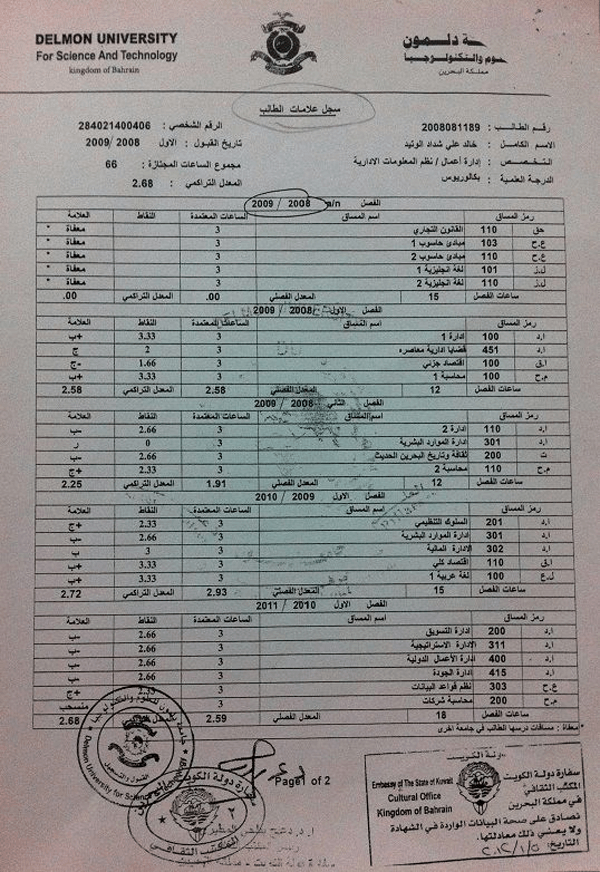 DELMON UNIVERSITY
For Science And Technology
kingdom of Bahrain
ـة دلـمـون
ـوم والتكنولوجيا
مملكة البحرين
سجل علامات الطالب
رقم الطالب : 2008081189 الرقم الشخصي : 284021400406
الاسم الكامل : خالد علي شداد الوتيد تاريخ القبول : الاول 2008 /2009
التخصص : إدارة أعمال / نظم المعلومات الادارية مجموع الساعات المجتازة : 66
الدرجة العلمية : بكالوريوس المعدل التراكمي : 2.68
الفصل m/n 2008 / 2009
رمز المساق اسم المساق الساعات المعتمدة النقاط العلامة
حق 110 القانون التجاري 3 معفاة *
ع.ح 103 مبادئ حاسوب 1 3 معفاة *
ع.ح 110 مبادئ حاسوب 2 3 معفاة *
ل.ز 101 لغة انجليزية 1 3 معفاة *
ل.ز 110 لغة انجليزية 2 3 معفاة *
ساعات الفصل 15 المعدل الفصلي .00 المعدل التراكمي .00
الفصل الاول 2008 / 2009
رمز المساق اسم المساق الساعات المعتمدة النقاط العلامة
ا.د 100 إدارة 1 3 3.33 ب+
ا.د 451 قضايا ادارية معاصره 3 2 ج
ا.ق 100 اقتصاد جزئي 3 1.66 ج-
م.ح 100 محاسبة 1 3 3.33 ب+
ساعات الفصل 12 المعدل الفصلي 2.58 المعدل التراكمي 2.58
الفصل الثاني 2008 / 2009
رمز المساق اسم المساق الساعات المعتمدة النقاط العلامة
ا.د 110 إدارة 2 3 2.66 ب-
ا.د 301 ادارة الموارد البشرية 3 0 ر
ث 200 ثقافة وتاريخ البحرين الحديث 3 2.66 ب-
م.ح 110 محاسبة 2 3 2.33 ج+
ساعات الفصل 12 المعدل الفصلي 1.91 المعدل التراكمي 2.25
الفصل الاول 2009 / 2010
رمز المساق اسم المساق الساعات المعتمدة النقاط العلامة
ا.د 201 السلوك التنظيمي 3 2.33 ج+
ا.د 301 ادارة الموارد البشرية 3 2.66 ب-
ا.د 302 الادارة المالية 3 3 ب
ا.ق 110 اقتصاد كلي 3 3.33 ب+
ل.ع 100 لغة عربية 1 3 3.33 ب+
ساعات الفصل 15 المعدل الفصلي 2.93 المعدل التراكمي 2.72
الفصل الاول 2010 / 2011
رمز المساق اسم المساق الساعات المعتمدة النقاط العلامة
ا.د 200 إدارة التسويق 3 2.66 ب-
ا.د 311 الادارة الاستراتيجية 3 2.66 ب-
ا.د 400 إدارة الأعمال الدولية 3 2.66 ب-
ا.د 415 إدارة الجودة 3 2.66 ب-
ع.ح 303 نظم قواعد البيانات 3 2.33 ج+
م.ح 200 محاسبة شركات 3 منسحب
ساعات الفصل 18 المعدل الفصلي 2.59 2.68
* معفاة : مساقات درسها الطالب في جامعة اخرى
Page1 of 2
Delmon University for Science
القبول والتسجيل
سفارة دولة الكويت
٢
المكتب الثقافي
ـولة الكويت
Embassy of The State of Kuwait
Cultural Office
Kingdom of Bahrain
سفارة دولة الكويت
المكتب الثقافي
في مملكة البحرين
نصادق على صحة البيانات الواردة في الشهادة
ولا يعني ذلك معادلتها.
التاريخ: ٢٠١٢/١/٥